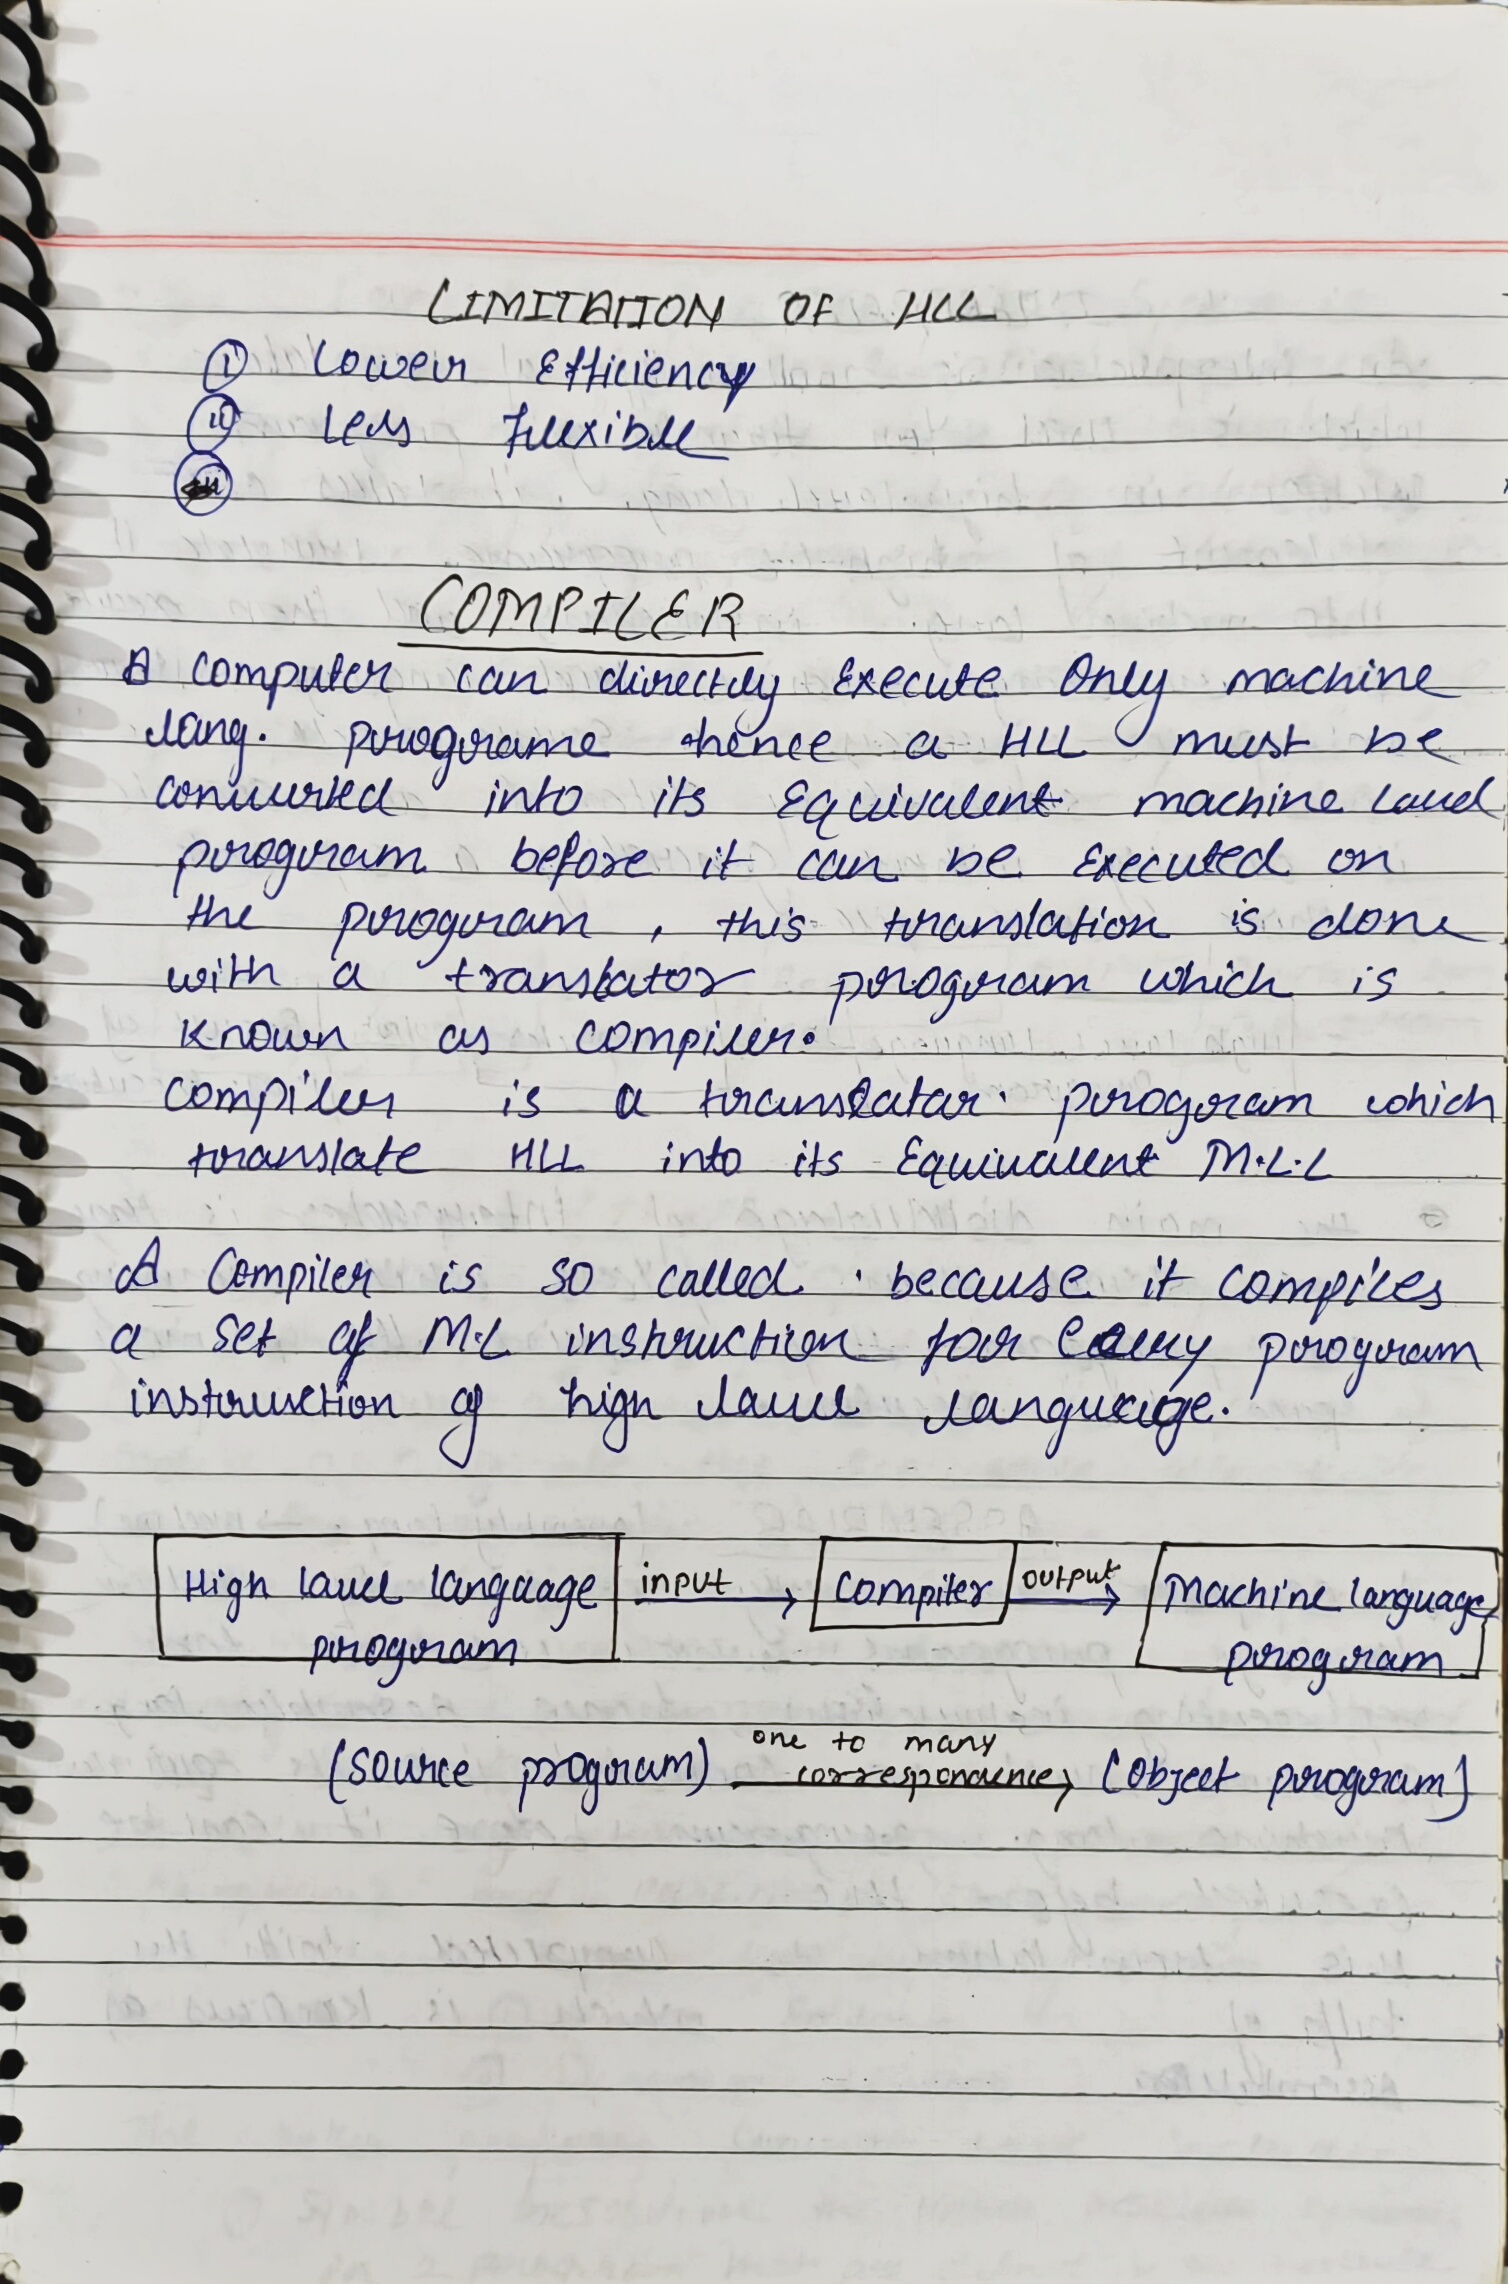 LIMITATION OF HLL
(i) Lower Efficiency
(ii) Less Flexible
COMPILER
A computer can directly Execute Only machine
lang. programe hence a HLL must be
converted into its Equivalent machine
program before it can be Executed on
the program, this translation is done
with a translator program which is
known as compiler.
Compiler is a translatar program which
translate HLL into its Equivalent M.L.L
A Compiler is so called because it compiles
a set of M.L instruction for every program
instruction of high level language.
High level language input Compiler output Machine language
program program
one to many
(Source program) correspondence (Object program)